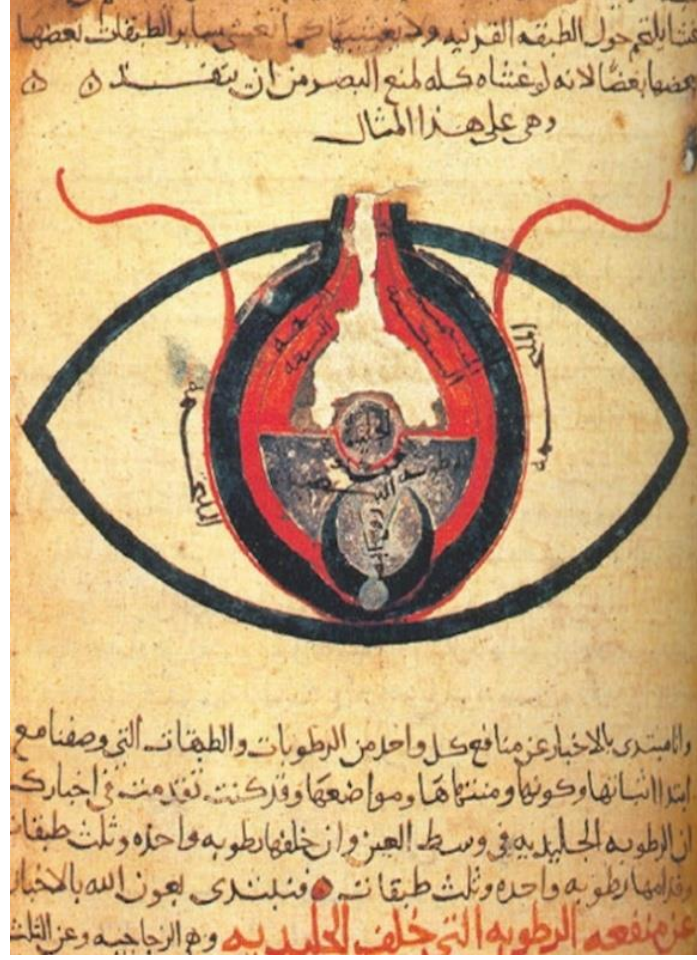 حول الطبقه القرنيه ولا يغشيها كما تغشى ساير الطبقات بعضها
بعضًا لانه لو غشاه كله لمنع البصر من ان ينفذ
وهي على هذا المثال
الملتحمه
الملتحمه
الجليديه
وانا مبتدى بالاخبار عن منافع كل واحد من الرطوبات والطبقات التي وصفنا مع
ابتدا اتيانها وكونها ومنتهاها ومواضعها وقد كنت تقدمت في اخبارك
ان الرطوبه الجليديه في وسط العين وان خلفها رطوبه واحده وثلث طبقات
وقدامها رطوبه واحده وثلث طبقات فنبتدى بعون الله بالاخبار
عن منفعه الرطوبه التي خلف الجليديه وهي الزجاجيه وعن الثلث